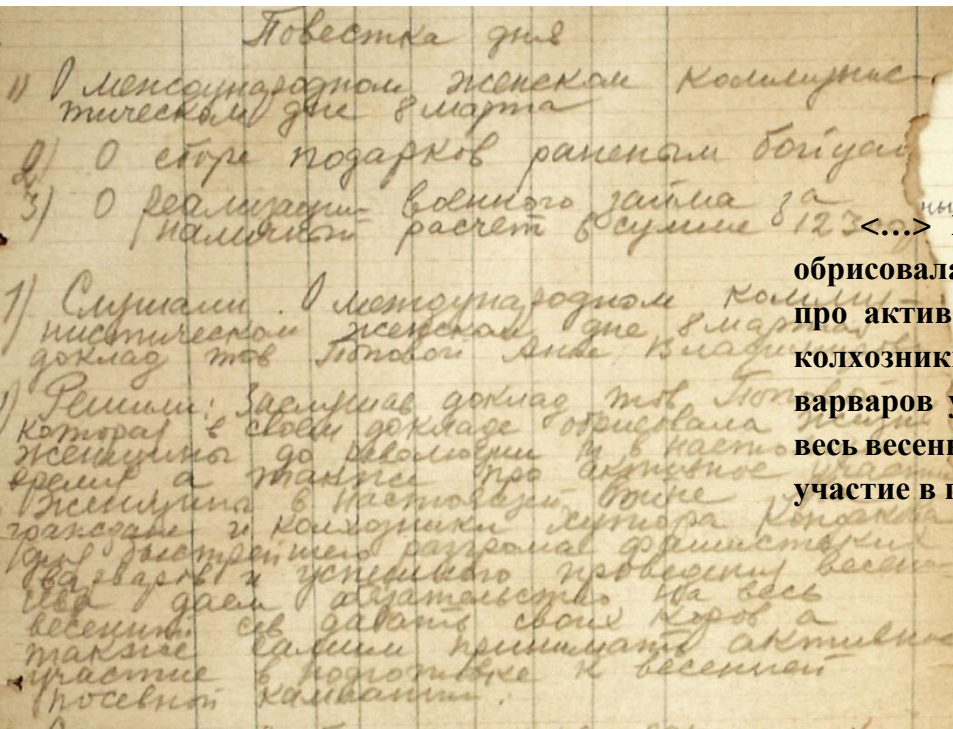 Повестка дня
1) О международном женском коммунис-
тическом дне 8 марта
2) О сборе подарков раненым бойцам
3) О реализации военного займа за
наличный расчет в сумме 123
1) Слушали. О международном коммун-
нистическом женском дне 8 марта
доклад тов Поповой Анны Владимировны
Решили: Заслушав доклад тов Поповой
которая в своем докладе обрисовала жизнь
женщины до революции и в настоящее
время а также про активное участие
женщины в настоящей войне
граждане и колхозники хутора
для быстрейшего разгрома фашистских
варваров и успешного проведения весен-
сева даем обязательство на весь
весенний сев давать своих коров а
также самим принимать активное
участие в подготовке к весенней
посевной кампании.
ны
<...>
обрисовала
про актив
колхозник
варваров у
весь весен
участие в п